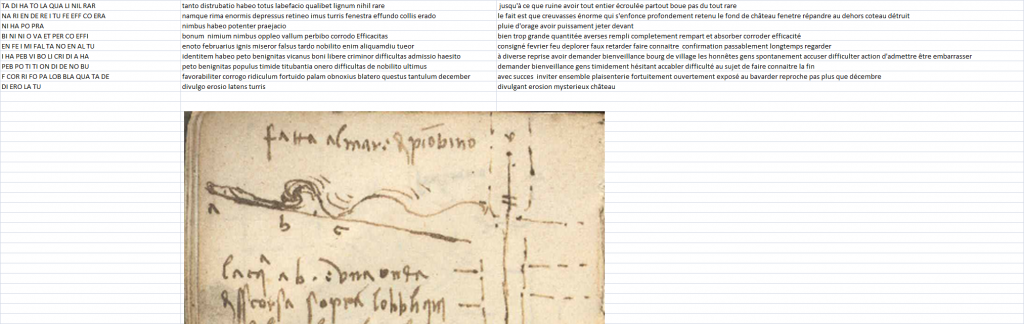 TA DI HA TO LA QUA LI NIL RAR tanto distrubatio habeo totus labefacio qualibet lignum nihil rare jusqu'à ce que ruine avoir tout entier écroulée partout boue pas du tout rare
NA RI EN DE RE I TU FE EFF CO ERA namque rima enormis depressus retineo imus turris fenestra effundo collis erado le fait est que creuvasses énorme qui s'enfonce profondement retenu le fond de château fenetre répandre au dehors coteau détruit
NI HA PO PRA nimbus habeo potenter praejacio pluie d'orage avoir puissament jeter devant
BI NI NI O VA ET PER CO EFFI bonum nimium nimbus oppleo vallum peribo corrodo Efficacitas bien trop grande quantitée averses rempli completement rempart et absorber corroder efficacité
EN FE I MI FALTA NO EN AL TU enoto februarius ignis miseror falsus tardo nobilito enim aliquamdiu tueor consigné fevrier feu deplorer faux retarder faire connaitre confirmation passablement longtemps regarder
I HA PEB VI BO LI CRI DI A HA identitem habeo peto benignitas vicanus boni libere criminor difficultas admissio haesito à diverse reprise avoir demander bienveillance bourg de village les honnêtes gens spontanement accuser difficulter action d'admettre être embarrasser
PEB PO TI TI ON DI DE NO BU peto benignitas populus timide titubantia onero difficultas de nobilito ultimus demander bienveillance gens timidement hésitant accabler difficulté au sujet de faire connaitre la fin
F COR RI FO PA LOB BLA QUA TA DE favorabiliter corrogo ridiculum fortuido palam obnoxius blatero questus tantulum december avec succes inviter ensemble plaisenterie fortuitement ouvertement exposé au bavarder reproche pas plus que décembre
DI ERO LA TU divulgo erosio latens turris divulgant erosion mysterieux château
fatta almare di piombino
a
b c